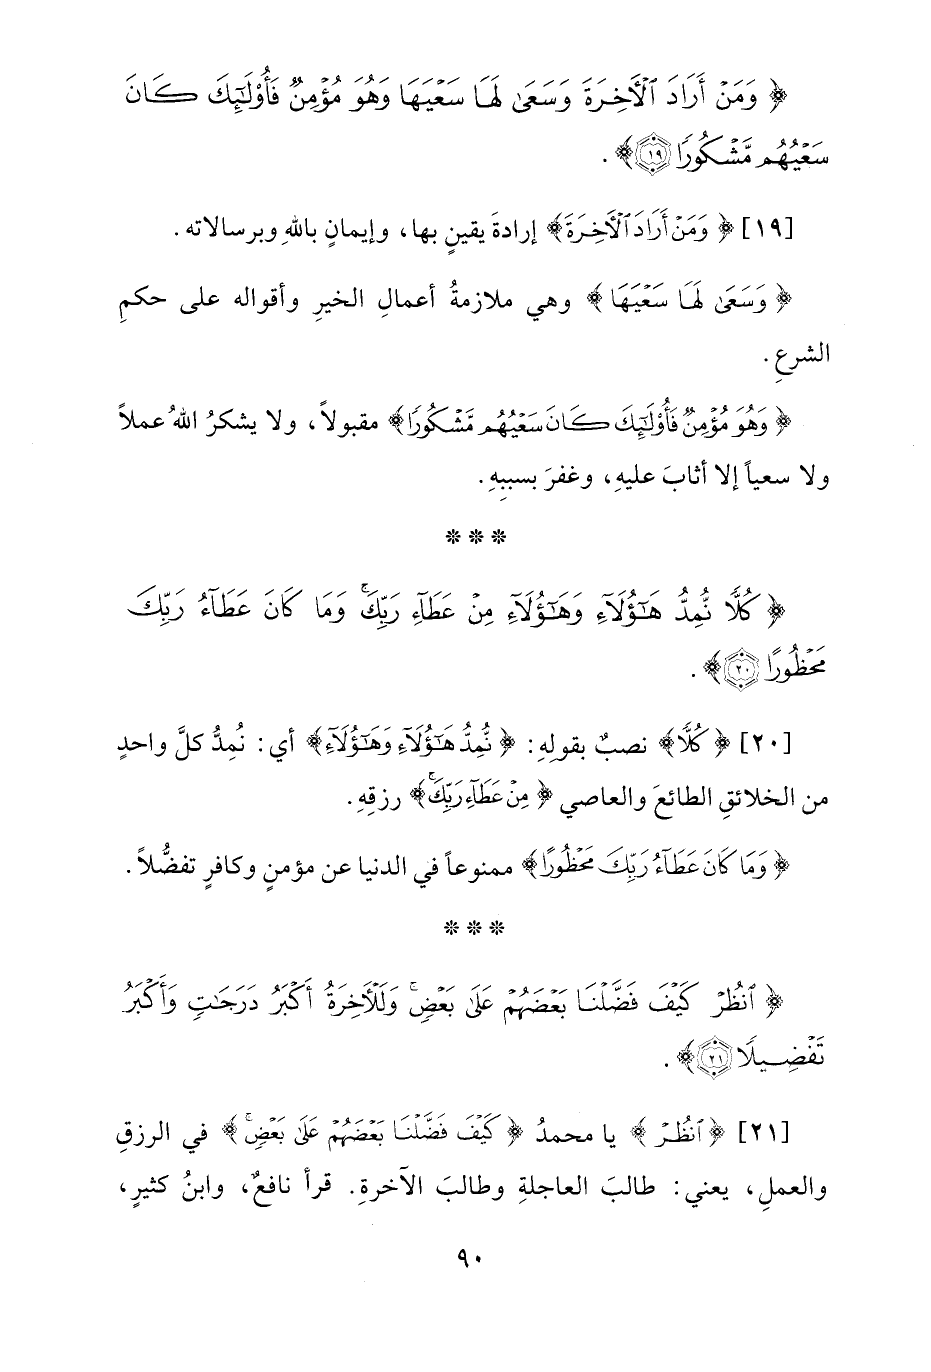 ﴿ وَمَنْ أَرَادَ ٱلْأَخِرَةَ وَسَعَىٰ لَهَا سَعْيَهَا وَهُوَ مُؤْمِنٌ فَأُوْلَٰٓئِكَ كَانَ
سَعْيُهُم مَّشْكُورًا ١٩ ﴾ .
[١٩] ﴿ وَمَنْ أَرَادَ ٱلْأَخِرَةَ﴾ إرادةَ يقينٍ بها، وإيمانٍ باللهِ وبرسالاته .
﴿ وَسَعَىٰ لَهَا سَعْيَهَا ﴾ وهي ملازمةُ أعمالِ الخيرِ وأقواله على حكمِ
الشرعِ .
﴿ وَهُوَ مُؤْمِنٌ فَأُوْلَٰٓئِكَ كَانَ سَعْيُهُم مَّشْكُورًا﴾ مقبولاً، ولا يشكرُ اللهُ عملاً
ولا سعياً إلا أثابَ عليهِ، وغفرَ بسببِهِ .
* * *
﴿ كُلًّا نُّمِدُّ هَٰٓؤُلَآءِ وَهَٰٓؤُلَآءِ مِنْ عَطَآءِ رَبِّكَۚ وَمَا كَانَ عَطَآءُ رَبِّكَ
مَحْظُورًا ٢٠ ﴾ .
[٢٠] ﴿ كُلًّا﴾ نصبٌ بقولِهِ: ﴿ نُّمِدُّ هَٰٓؤُلَآءِ وَهَٰٓؤُلَآءِ﴾ أي: نُمِدُّ كلَّ واحدٍ
من الخلائقِ الطائعَ والعاصي ﴿ مِنْ عَطَآءِ رَبِّكَۚ ﴾ رزقِهِ.
﴿ وَمَا كَانَ عَطَآءُ رَبِّكَ مَحْظُورًا﴾ ممنوعاً في الدنيا عن مؤمنٍ وكافرٍ تفضُّلاً .
* * *
﴿ ٱنظُرْ كَيْفَ فَضَّلْنَا بَعْضَهُمْ عَلَىٰ بَعْضٍۚ وَلَلْأَخِرَةُ أَكْبَرُ دَرَجَٰتٍ وَأَكْبَرُ
تَفْضِيلًا ٢١ ﴾ .
[٢١] ﴿ ٱنظُرْ ﴾ يا محمدُ ﴿ كَيْفَ فَضَّلْنَا بَعْضَهُمْ عَلَىٰ بَعْضٍۚ ﴾ في الرزقِ
والعملِ، يعني: طالبَ العاجلةِ وطالبَ الآخرةِ. قرأ نافعٌ، وابنُ كثيرٍ،
٩٠